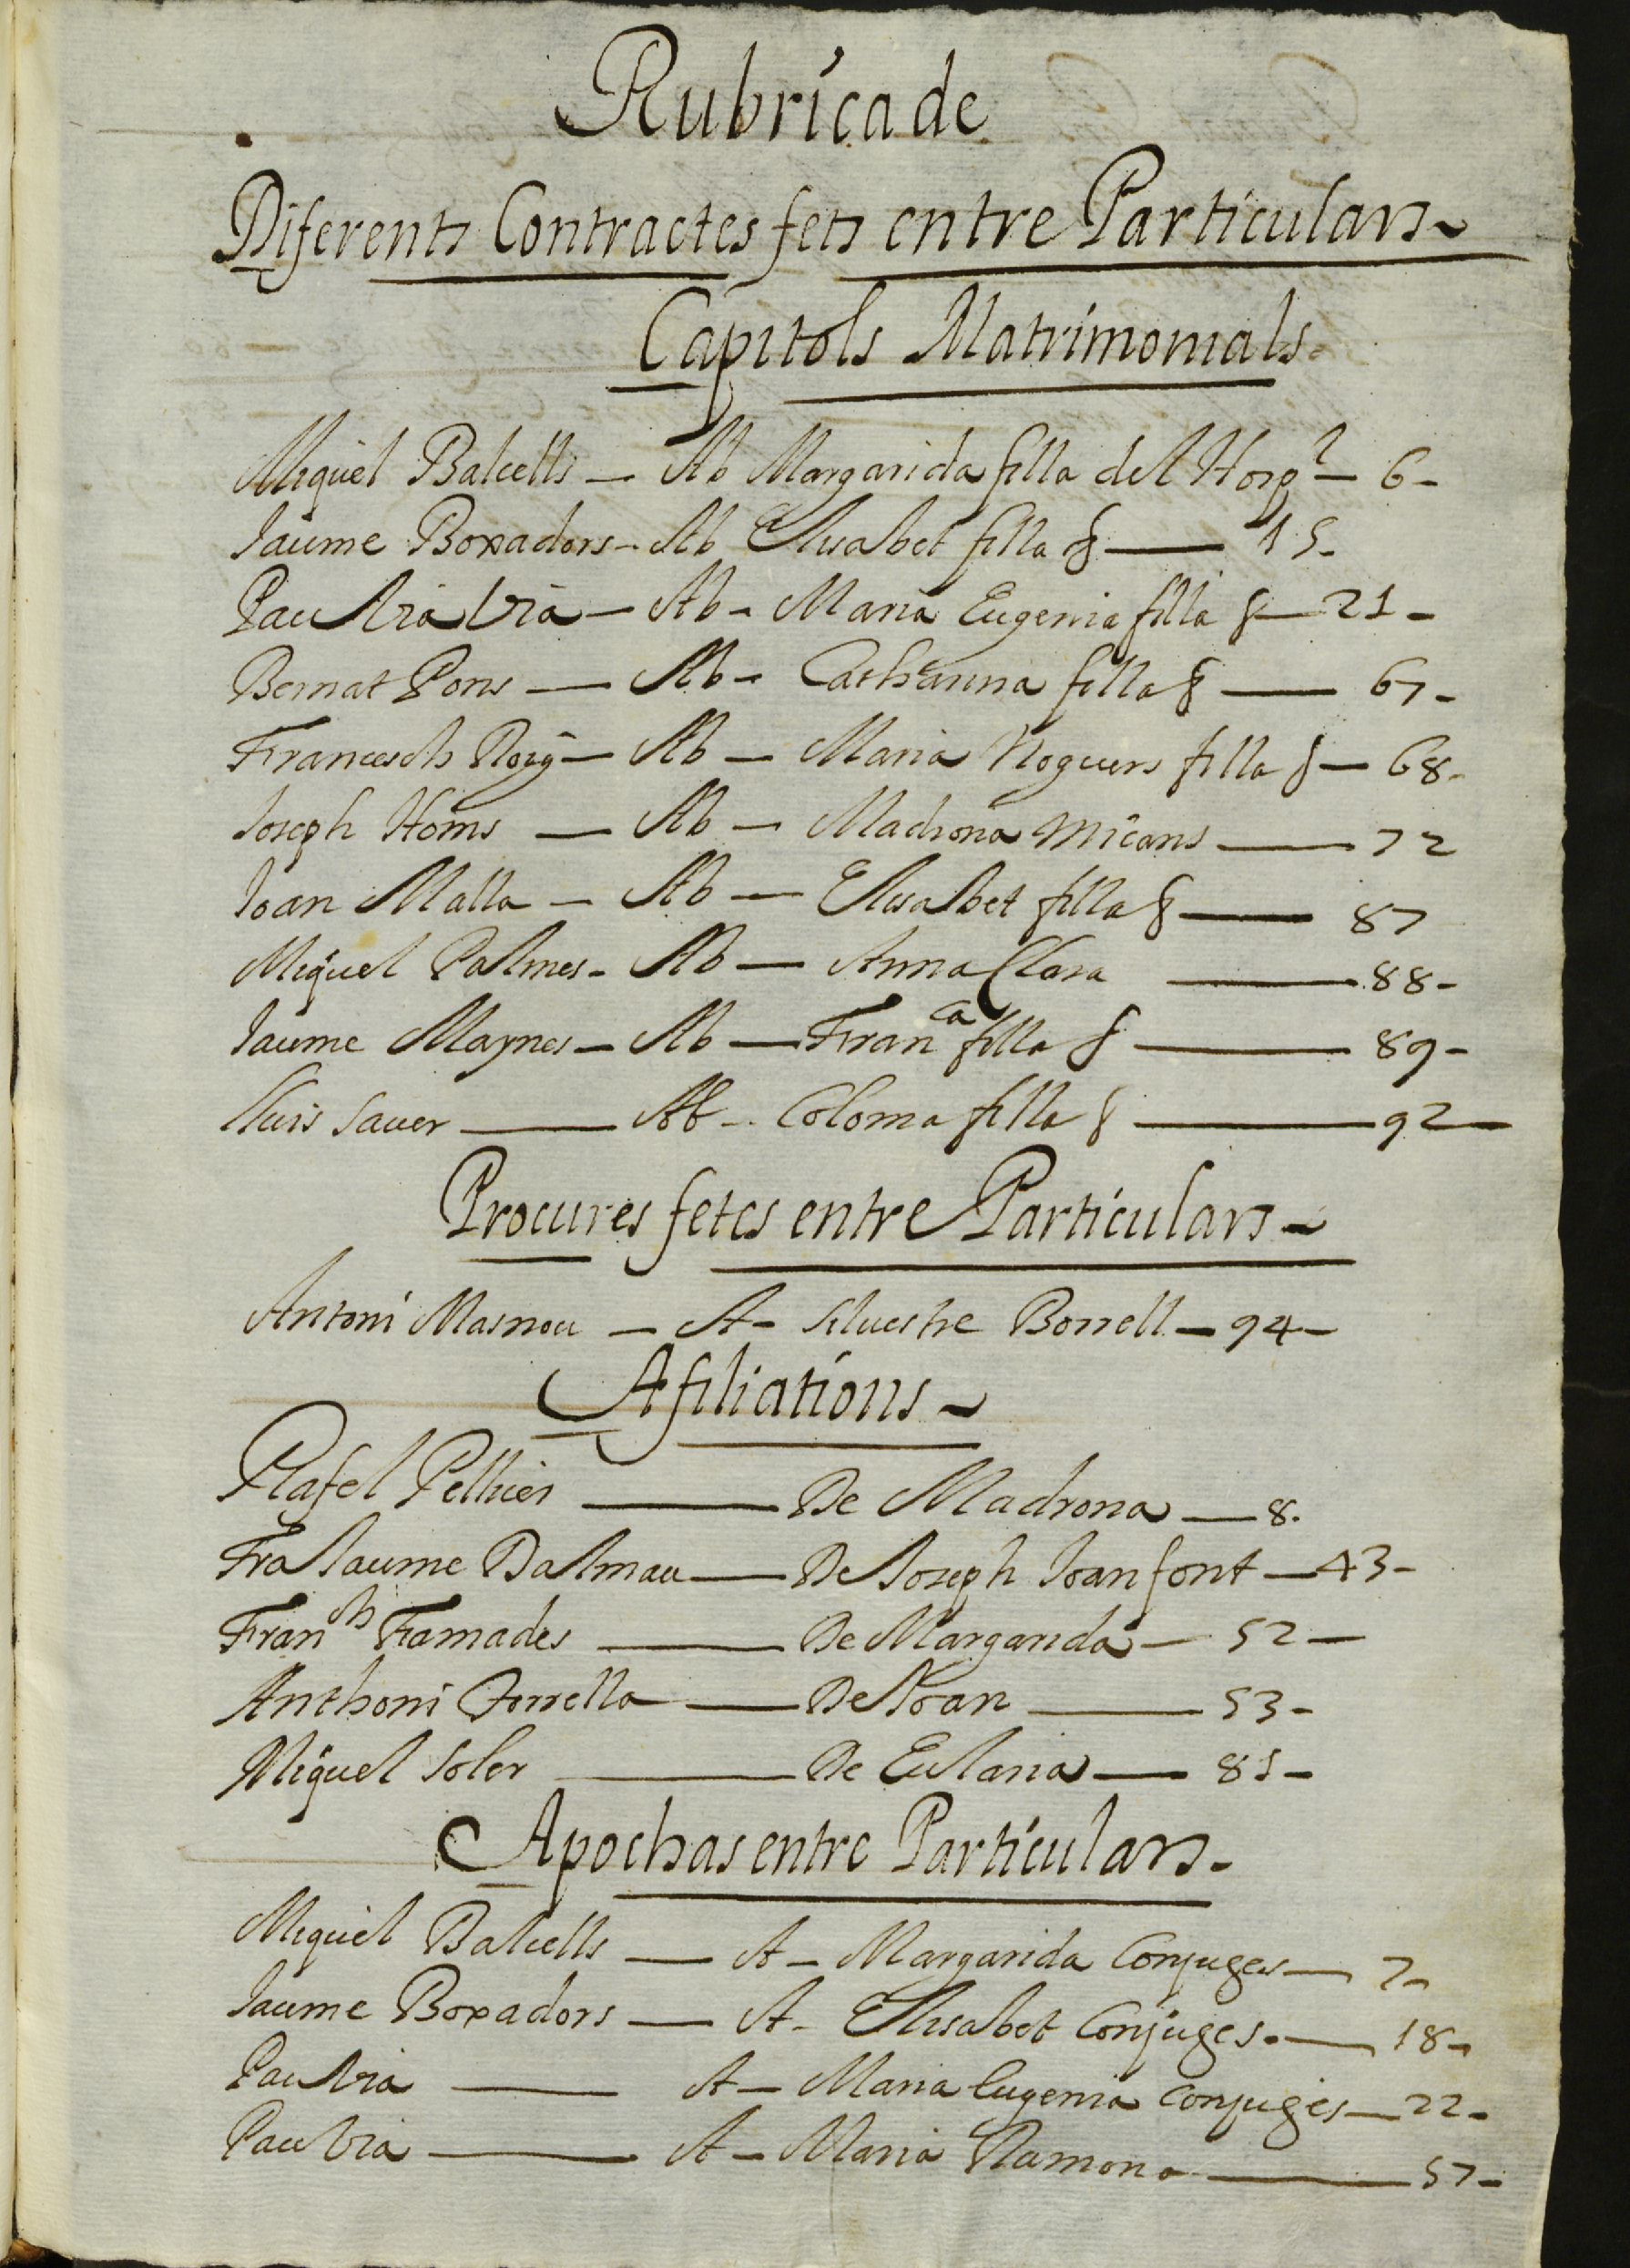 Rubrica de
Diferents Contractes fets entre Particulars
Capitols Matrimonials
Miquel Balcells — Ab Margarida filla del Hospl — 6 -
Jaume Boxadors - Ab Elisabet filla § — 15 -
Pau Via — Ab - Maria Eugenia filla § — 21 -
Bernat Pons — Ab - Catharina filla § — 67 -
Francesch Roig — Ab — Maria Noguers filla § — 68 -
Joseph Homs — Ab — Madrona Micans — 72
Joan Malla — Ab — Elisabet filla § — 87
Miquel Palmes - Ab — Anna Clara — 88 -
Jaume Maynes — Ab — Franca filla § — 89 -
Lluis Saver — Ab - Coloma filla § — 92 —
Procures fetes entre Particulars -
Antoni Masnou — A - Silvestre Borrell — 94 -
Afiliations -
Rafel Pellicer — De Madrona — 8.
Fra Jaume Dalmau — De Joseph Joan font — 43 -
Franch Famades — De Margarida — 52 —
Anthoni Torrella — De Joan — 53 -
Miquel Soler — De Eularia — 85 -
Apochas entre Particulars -
Miquel Balcells — A - Margarida Conjuges — 7 -
Jaume Boxadors — A - Elisabet Conjuges - — 18 -
Pau Via — A — Maria Eugenia Conjuges — 22 -
Pau Via — A — Maria Ramona — 57 -